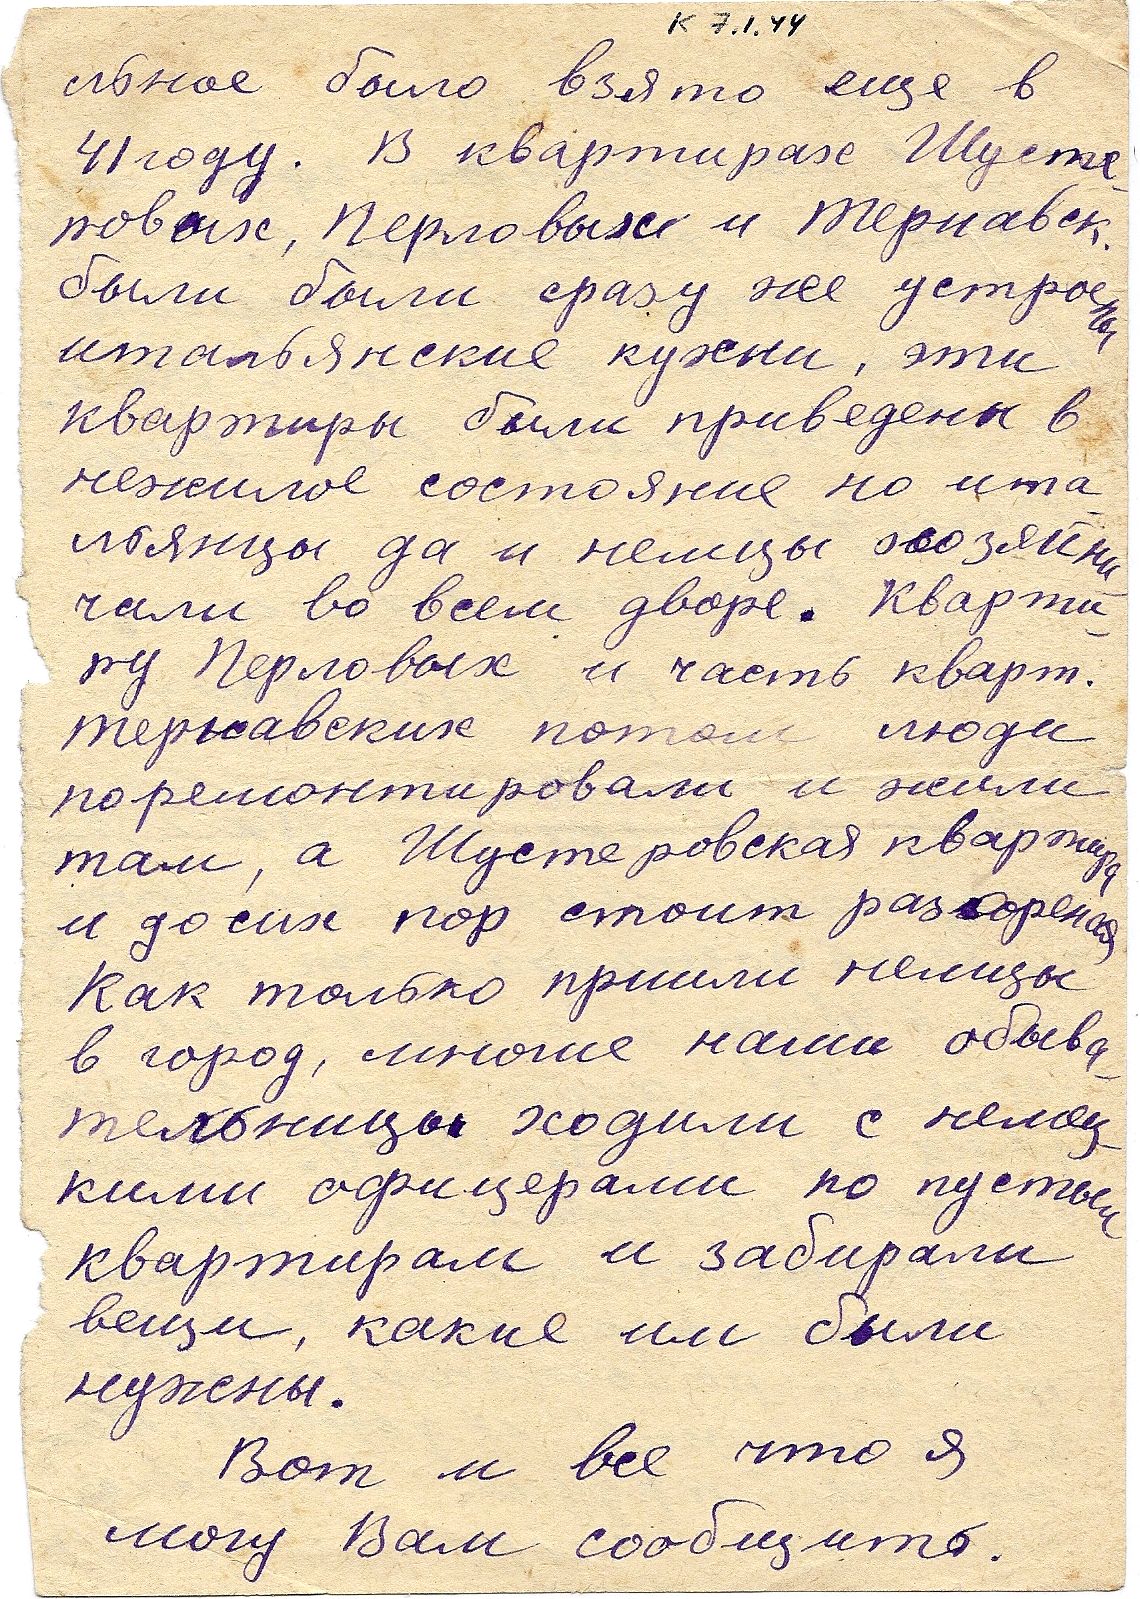 К 7.I.44
льное было взято еще в
41 году. В квартирах Шусте-
ровых, Перловых и Тернавск.
были были сразу же устроены
итальянские кухни, эти
квартиры были приведены в
нежилое состояние но ита-
льянцы да и немцы хозяйни
чали во всем дворе. Кварти-
ру Перловых и часть кварт.
Тернавских потом люди
поремонтировали и жили
там, а Шустеровская квартира
и до сих пор стоит разореная
Как только пришли немцы
в город, многие наши обыва-
тельницы ходили с немец-
кими офицерами по пустым
квартирам и забирали
вещи, какие им были
нужны.
Вот и все что я
могу Вам сообщить.